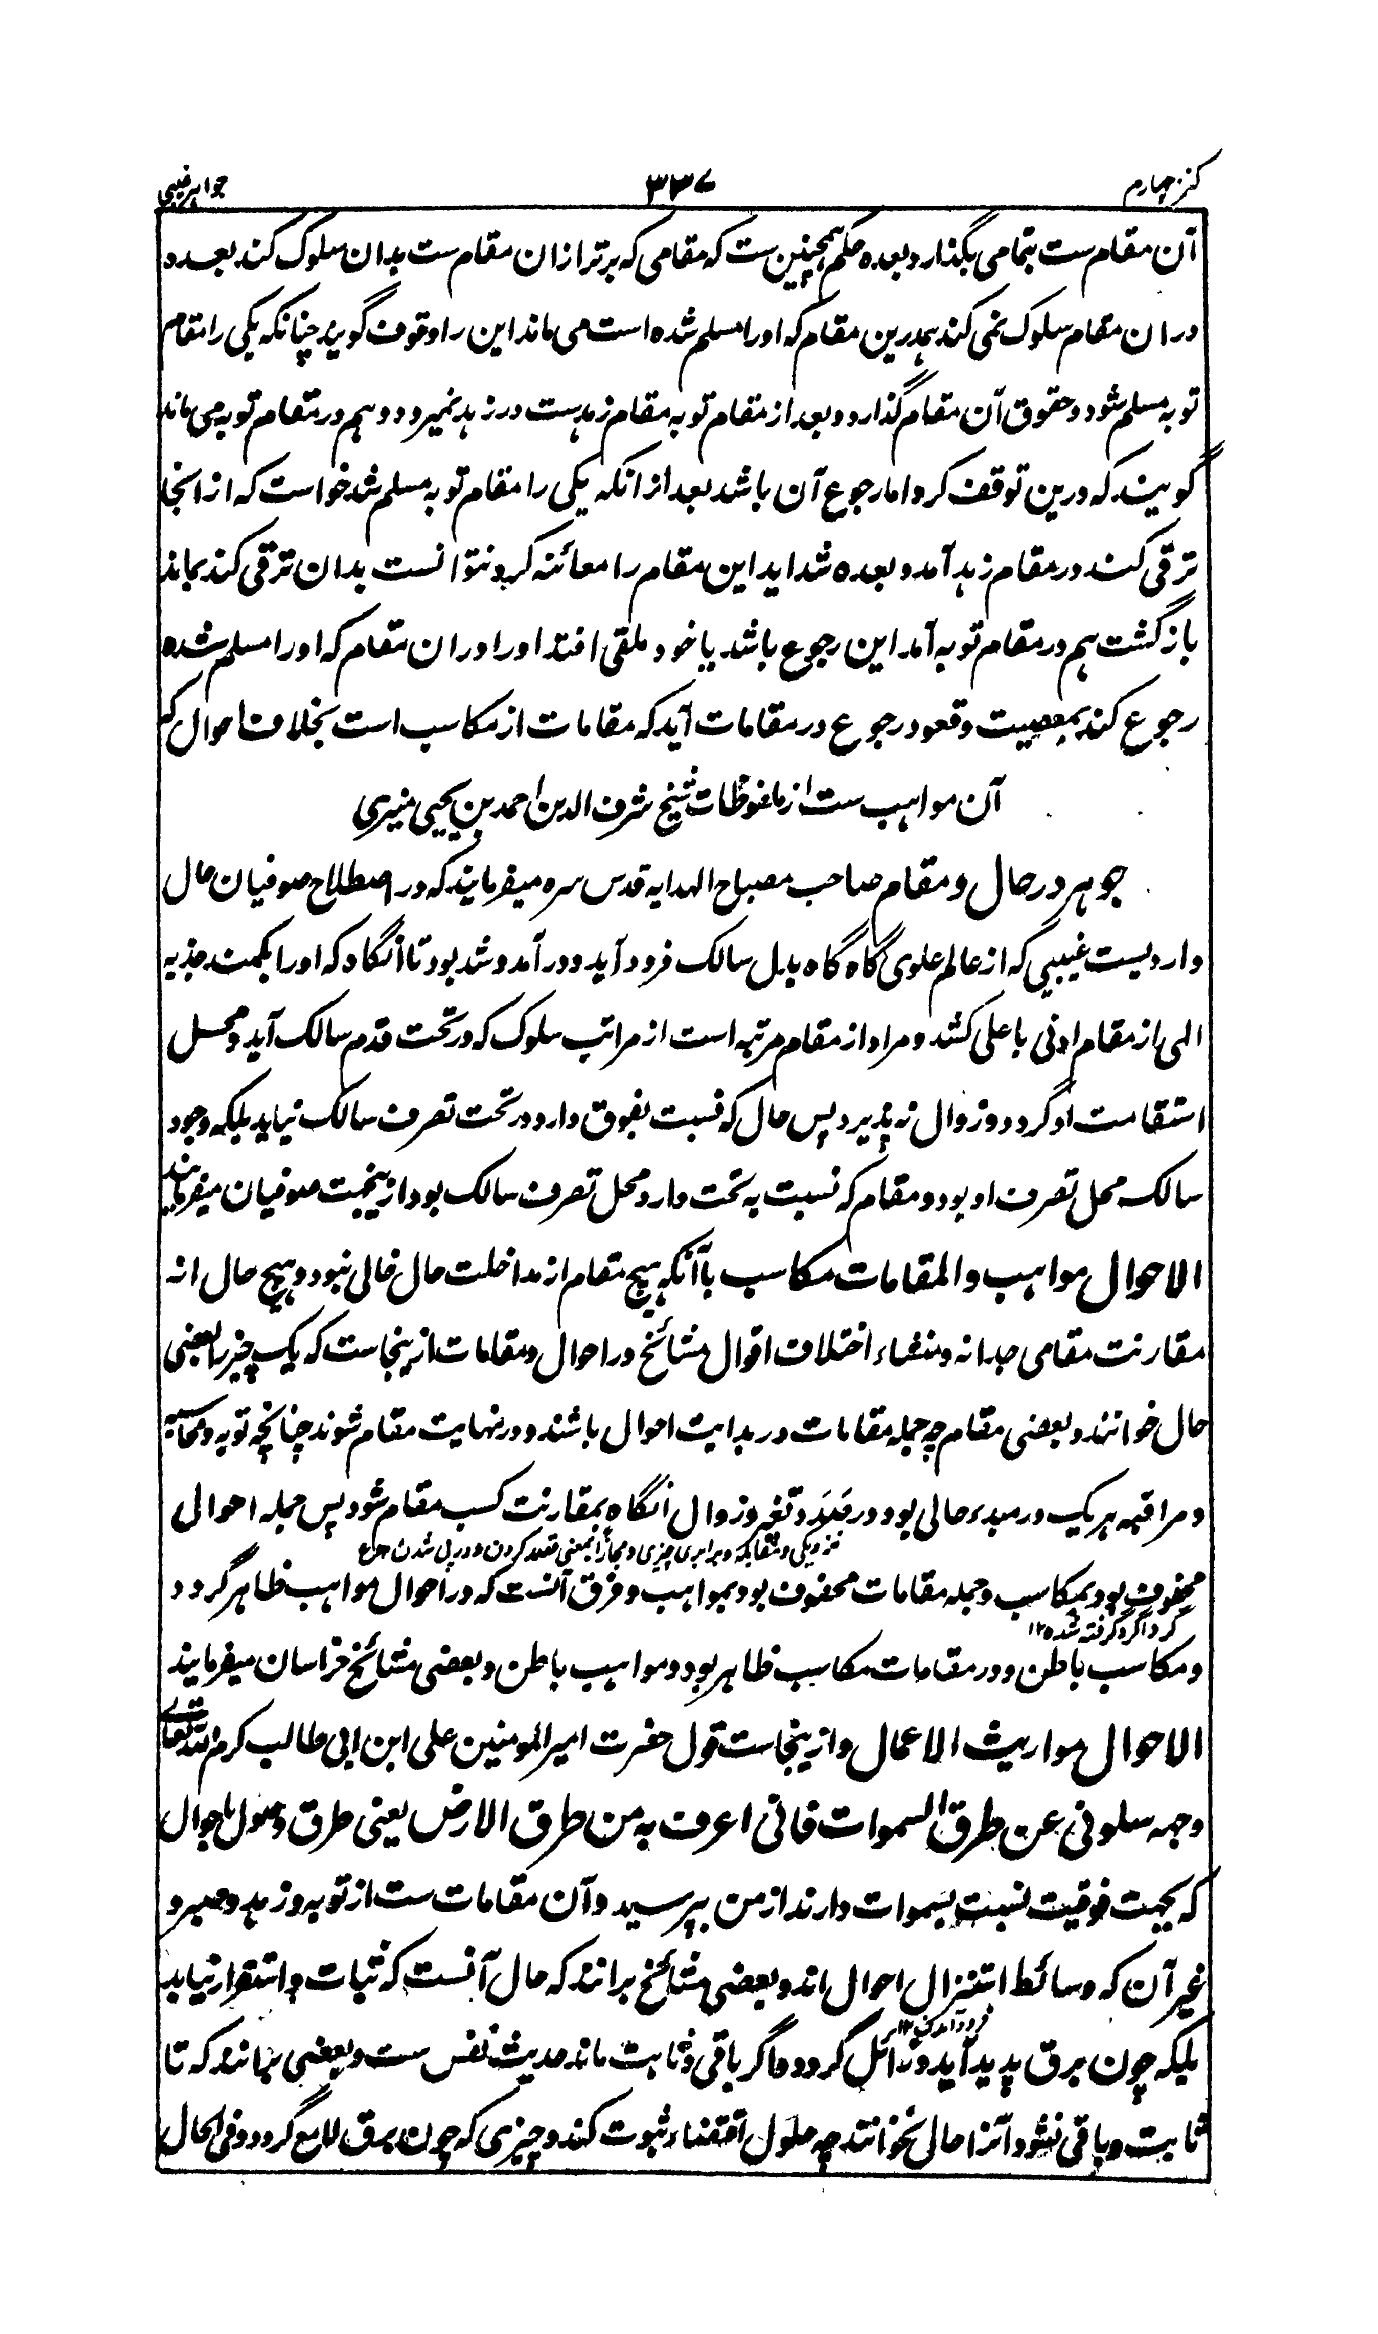 کنز چهارم ۳۳۷ جواهر غیبی
آن مقام ست بتمامی بگذارد و بعده حکم همچنین ست که مقامی که برتر ازان مقام ست بدان سلوک کند بعده و
دران مقام سلوک نمی کند بهدرین مقام که اورا مسلم شده است می ماند این را وقوف گویند چنانکه یکی را مقام
توبه مسلم شود و حقوق آن مقام گذارد و بعد از مقام توبه مقام زهدست در زهد نمیرود و هم در مقام توبه می ماند
گویند که درین توقف کرد اما رجوع آن باشد بعد ازانکه یکی را مقام توبه مسلم شد خواست که از انجا
ترقی کند در مقام زهد آمد و بعده شداید این مقام را معائنه کرد نتوانست بدان ترقی کند بماند
بازگشت هم در مقام توبه آمد این رجوع باشد یا خود ملقی افتد اورا دران مقام که اورا مسلم شده
رجوع کند بمعصیت وقعود رجوع در مقامات آید که مقامات از مکاسب است بخلاف احوال که
آن مواهب ست از ملفوظات شیخ شرف الدین احمد بن یحیی منیری
جوهر در حال و مقام صاحب مصباح الهدایه قدس سره میفرمایند که در اصطلاح صوفیان حال
واردیست غیبی که از عالم علوی گاه گاه بدل سالک فرود آید و در آمد و شد بود تا آنگاه که اورا بکمند جذبه
الهی از مقام ادنی باعلی کشد و مراد از مقام مرتبه است از مراتب سلوک که در تحت قدم سالک آید و محل
استقامت او گردد و زوال نه پذیرد پس حال که نسبت بفوق دارد در تحت تصرف سالک نیاید بلکه وجود
سالک محل تصرف او بود و مقام که نسبت به تحت دارد محل تصرف سالک بود ازینجهت صوفیان میفرمایند
الاحوال مواهب والمقامات مکاسب باآنکه هیچ مقام از مداخلت حال خالی نبود و هیچ حال از
مقارنت مقامی جدا نه و منشاء اختلاف اقوال مشائخ در احوال و مقامات ازینجاست که یک چیز را بعضی
حال خوانند و بعضی مقام چه جمله مقامات در بدایت احوال باشند و در نهایت مقام شوند چنانچه توبه و محاسبه
و مراقبه هر یک در مبدء حالی بود در صدد تغیر و زوال آنگاه بمقارنت کسب مقام شود پس جمله احوال
نزدیکی و مقابله و برابری چیزی و مجازا بمعنی قصد کردن و در پی شدن
محفوف بود بمکاسب و جمله مقامات محفوف بود بمواهب و فرق آنست که در احوال مواهب ظاهر گردد
گرداگرد گرفته شده ۱۲
و مکاسب باطن و در مقامات مکاسب ظاهر بود و مواهب باطن و بعضی مشائخ خراسان میفرمایند
الاحوال مواریث الاعمال و ازینجاست قول حضرت امیر المومنین علی ابن ابی طالب کرم الله تعالے
وجهه سلونی عن طرق السموات فانی اعرف به من طرق الارض یعنی طرق وصول باحوال
که بجهت فوقیت نسبت بسموات دارند از من بپرسید و آن مقامات ست از توبه و زهد و صبر و
غیر آن که وسائط استنزال احوال اند و بعضی مشائخ برانند که حال آنست که ثبات و استقرار نیابد
فرود آمدن ۱۲
بلکه چون برق پدید آید و زائل گردد و اگر باقی و ثابت ماند حدیث نفس ست و بعضی برانند که تا
ثابت و باقی نشود آنرا حال نخوانند چه حلول اقتضاء ثبوت کند و چیزی که چون برق لامع گردد و فی الحال